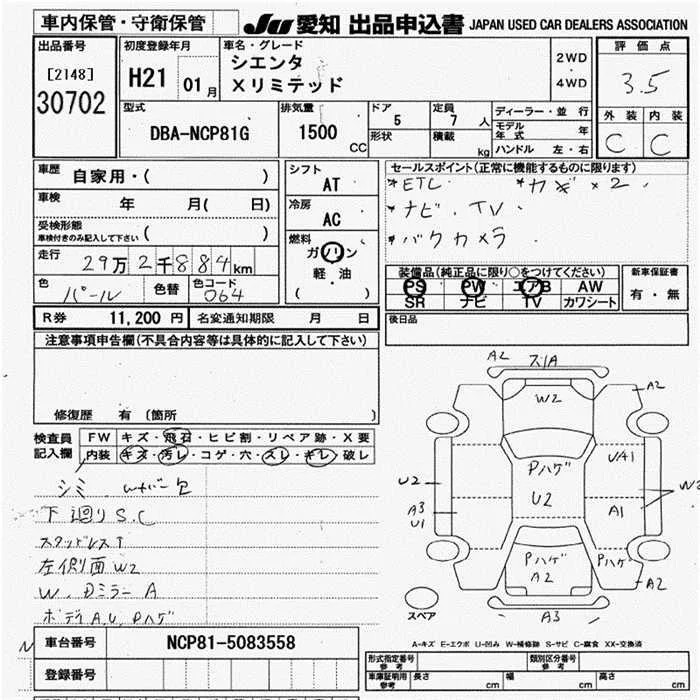 車内保管・守衛保管
JU 愛知 出品申込書 JAPAN USED CAR DEALERS ASSOCIATION
出品番号
[2148]
30702
初度登録年月
H21 01月
車名・グレード
シエンタ
Xリミテッド
2WD
・
4WD
評価点
3.5
外装 内装
C C
型式
DBA-NCP81G
排気量
1500 CC
ドア
5
形状
定員
7 人
積載 kg
ディーラー・並行
モデル年式 年
ハンドル 左・右
車歴 自家用・( )
車検 年 月( 日)
受検形態
車検付きのみ記入して下さい ( )
走行 29万2千884km
色 パール 色替 色コード 064
シフト
AT
冷房
AC
燃料
ガソリン
・
軽・油
( )
セールスポイント(正常に機能するものに限ります)
*ETC *カギ×2
*ナビ.TV
*バックカメラ
装備品(純正品に限り○をつけてください)
PS PW エアB AW
SR ナビ TV カワシート
新車保証書
有・無
R券 11,200円 名変通知期限 月 日
後日品
注意事項申告欄(不具合内容等は具体的に記入して下さい)
修復歴 有 〔箇所 〕
検査員記入欄
FW キズ・飛石・ヒビ割・リペア跡・X要
内装 キズ・汚レ・コゲ・穴・スレ・キレ・破レ
シミ
下廻りS.C
スタッドレスT
左側面W2
W.DミラーA
ボディA.U.Pハゲ
A2 ズリA
W2
A2
Pハゲ
U2
UA1
U2
A3
U1
A1
Pハゲ
A2
Pハゲ
A2
A3
スペア
A-キズ E-エクボ U-凹み W-補修跡 S-サビ C-腐食 XX-交換済
車台番号 NCP81-5083558
登録番号
形式指定番号
参考
類別区分番号
参考
車庫証明用
参考
長さ cm 幅 cm 高さ cm